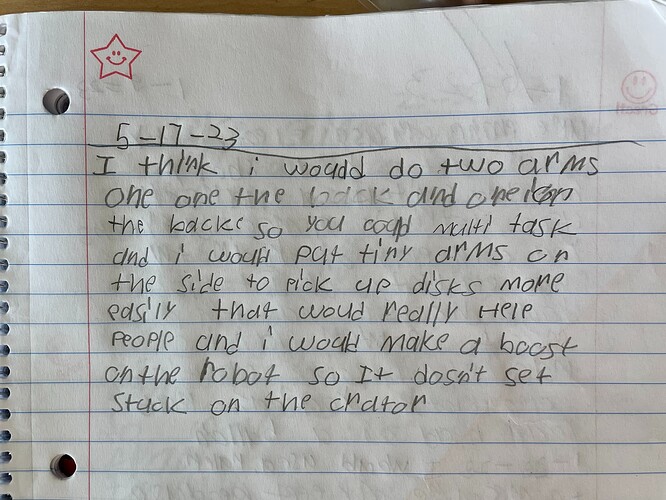 5-17-23
I think i woudd do two arms
one one the back and one on
the backe so you coupd multi task
and i woupd put tiny arms on
the side to pick up disks more
easily that woud really Help
People and i woupd make a boost
on the robot so It dosn't get
stuck on the crator